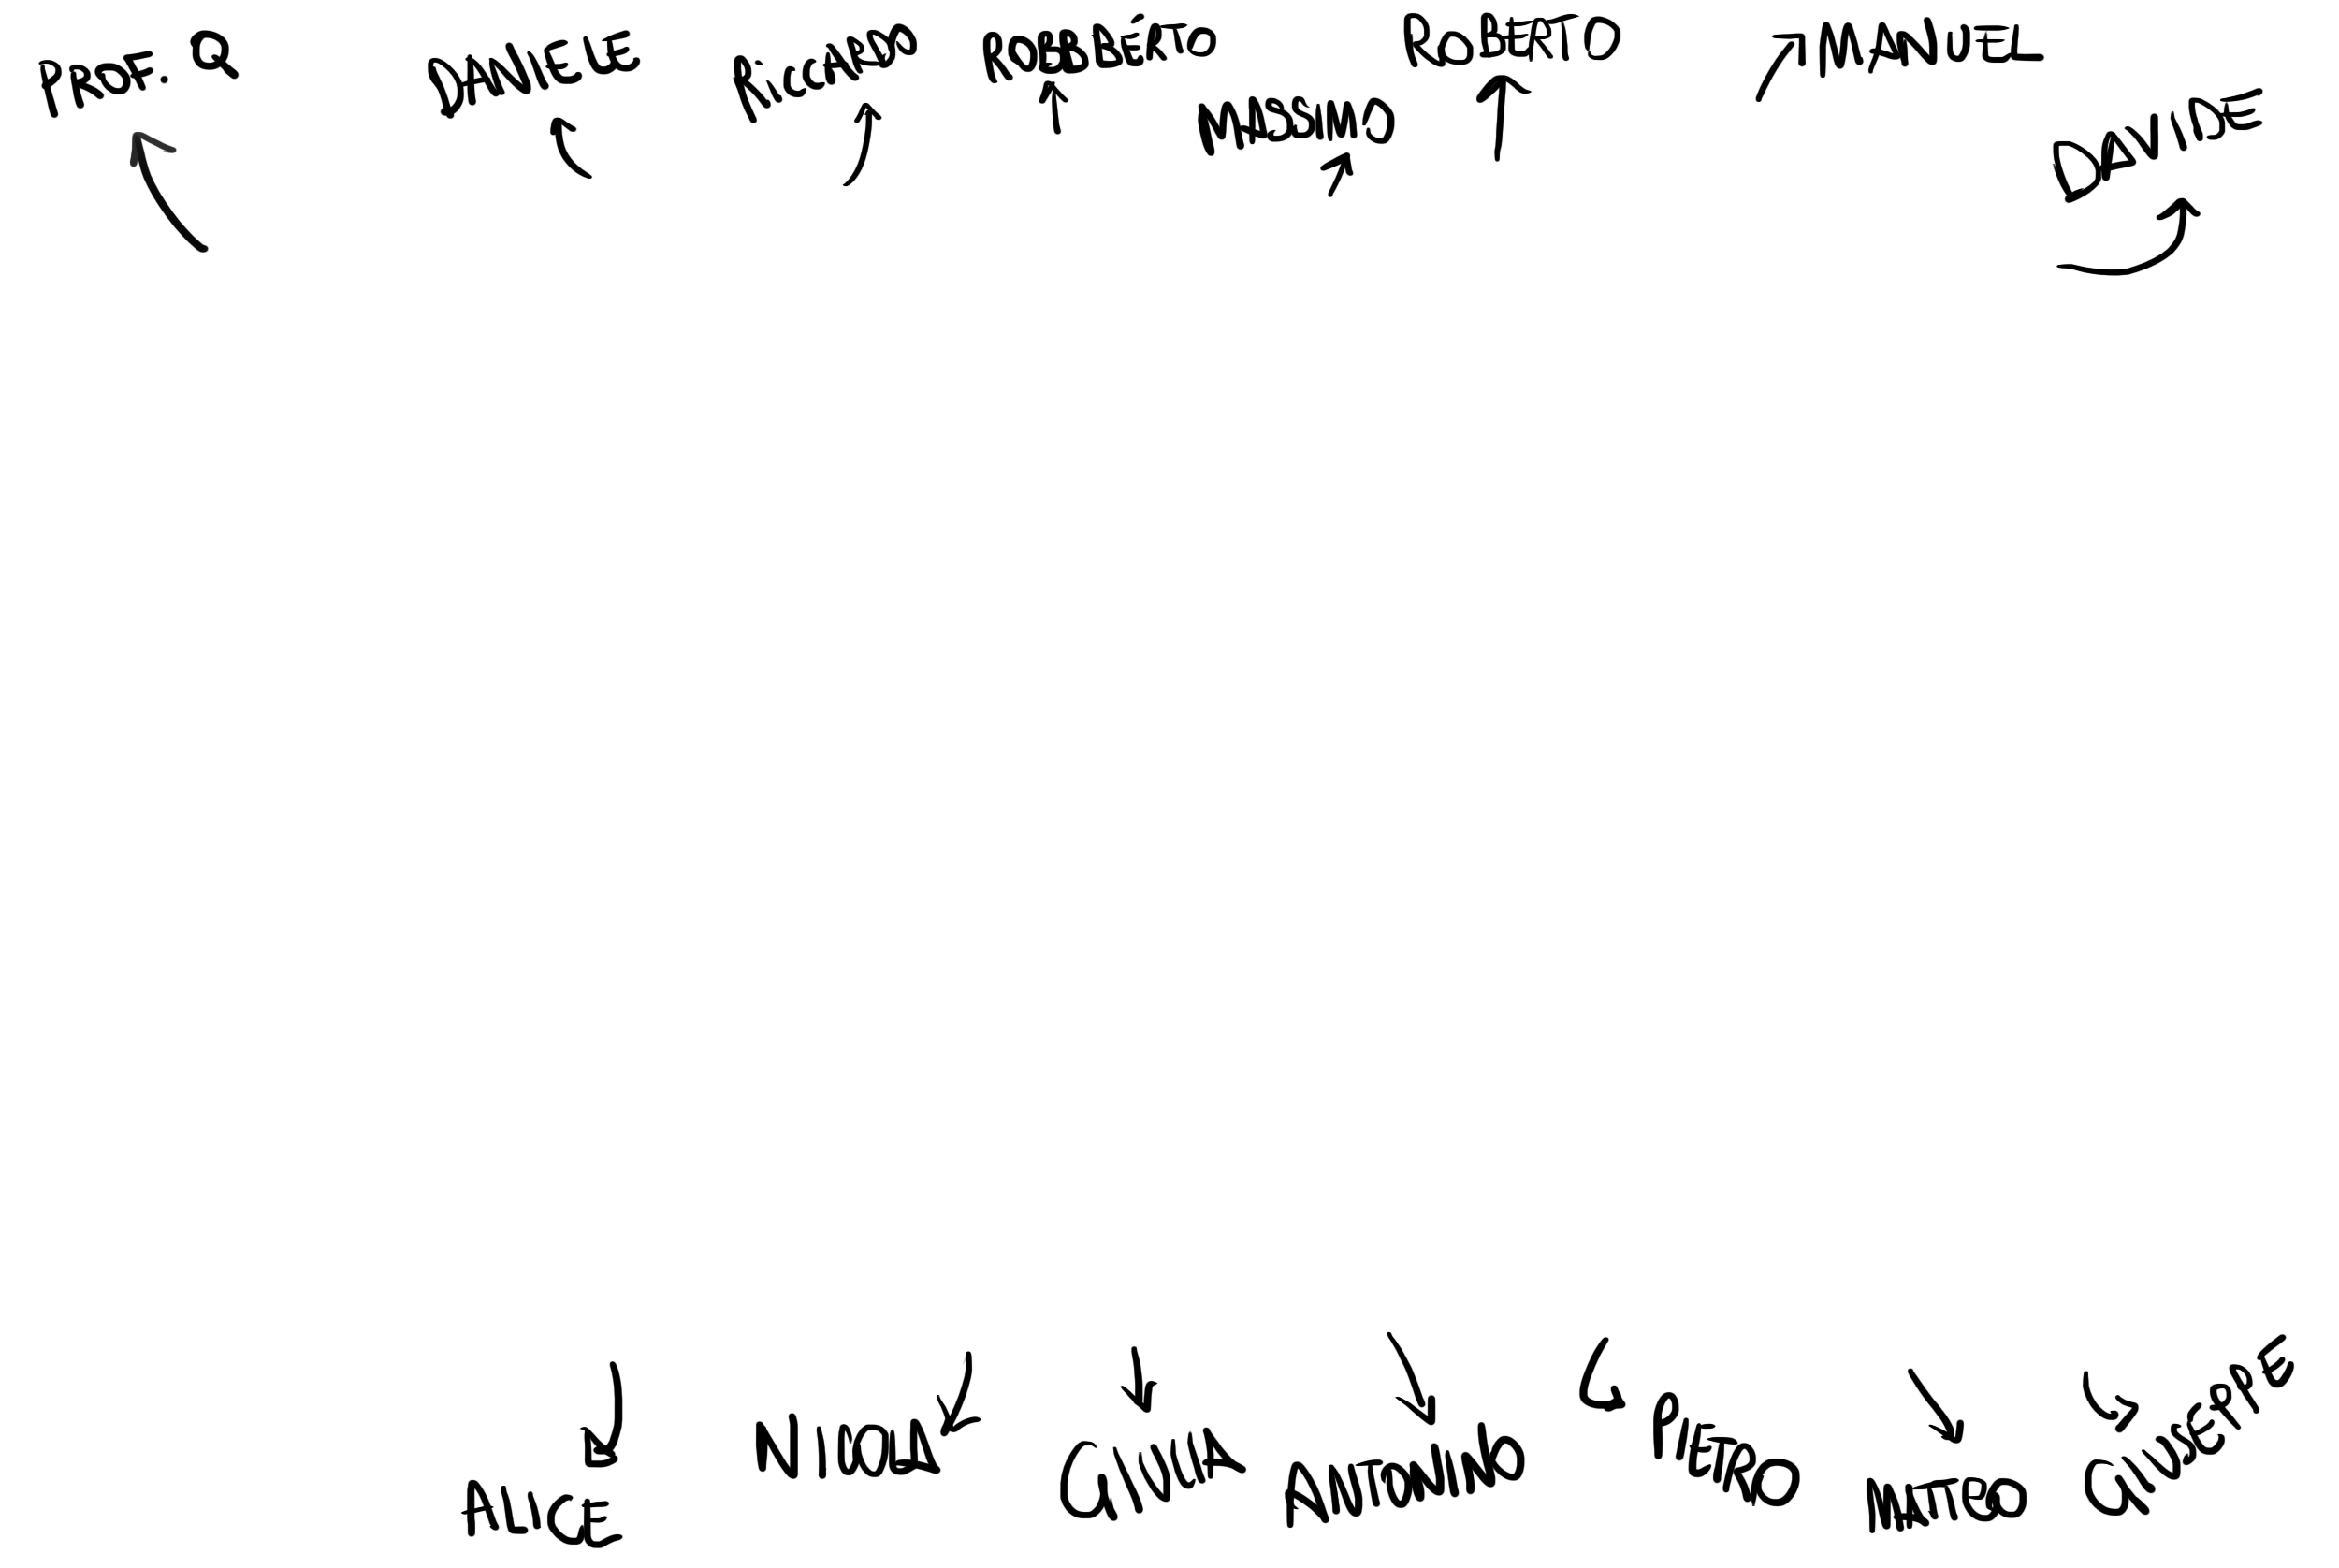 PROF. Q
DANIELE
RiCCARDO
ROBBBÉRTO
MASSIMO
ROBERTO
MANUEL
DAVIDE
ALICE
NICOLA
GIULIA
ANTONINO
PIETRO
MATTEO
GIUSEPPE